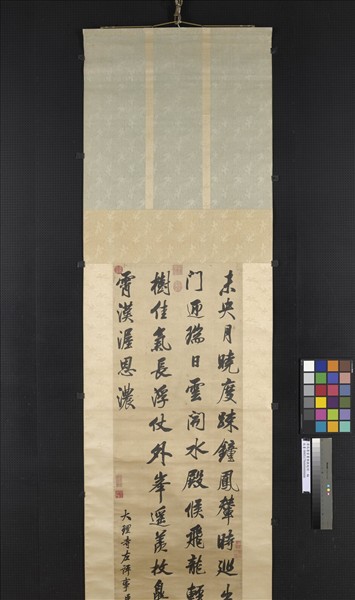 未央月曉度疎鐘鳳輦時巡出
门迎瑞日雲開水殿候飛龍輕
樹佳氣長浮仗外峯遥羨枚皋
霄漢渥恩濃
大理寺左評事